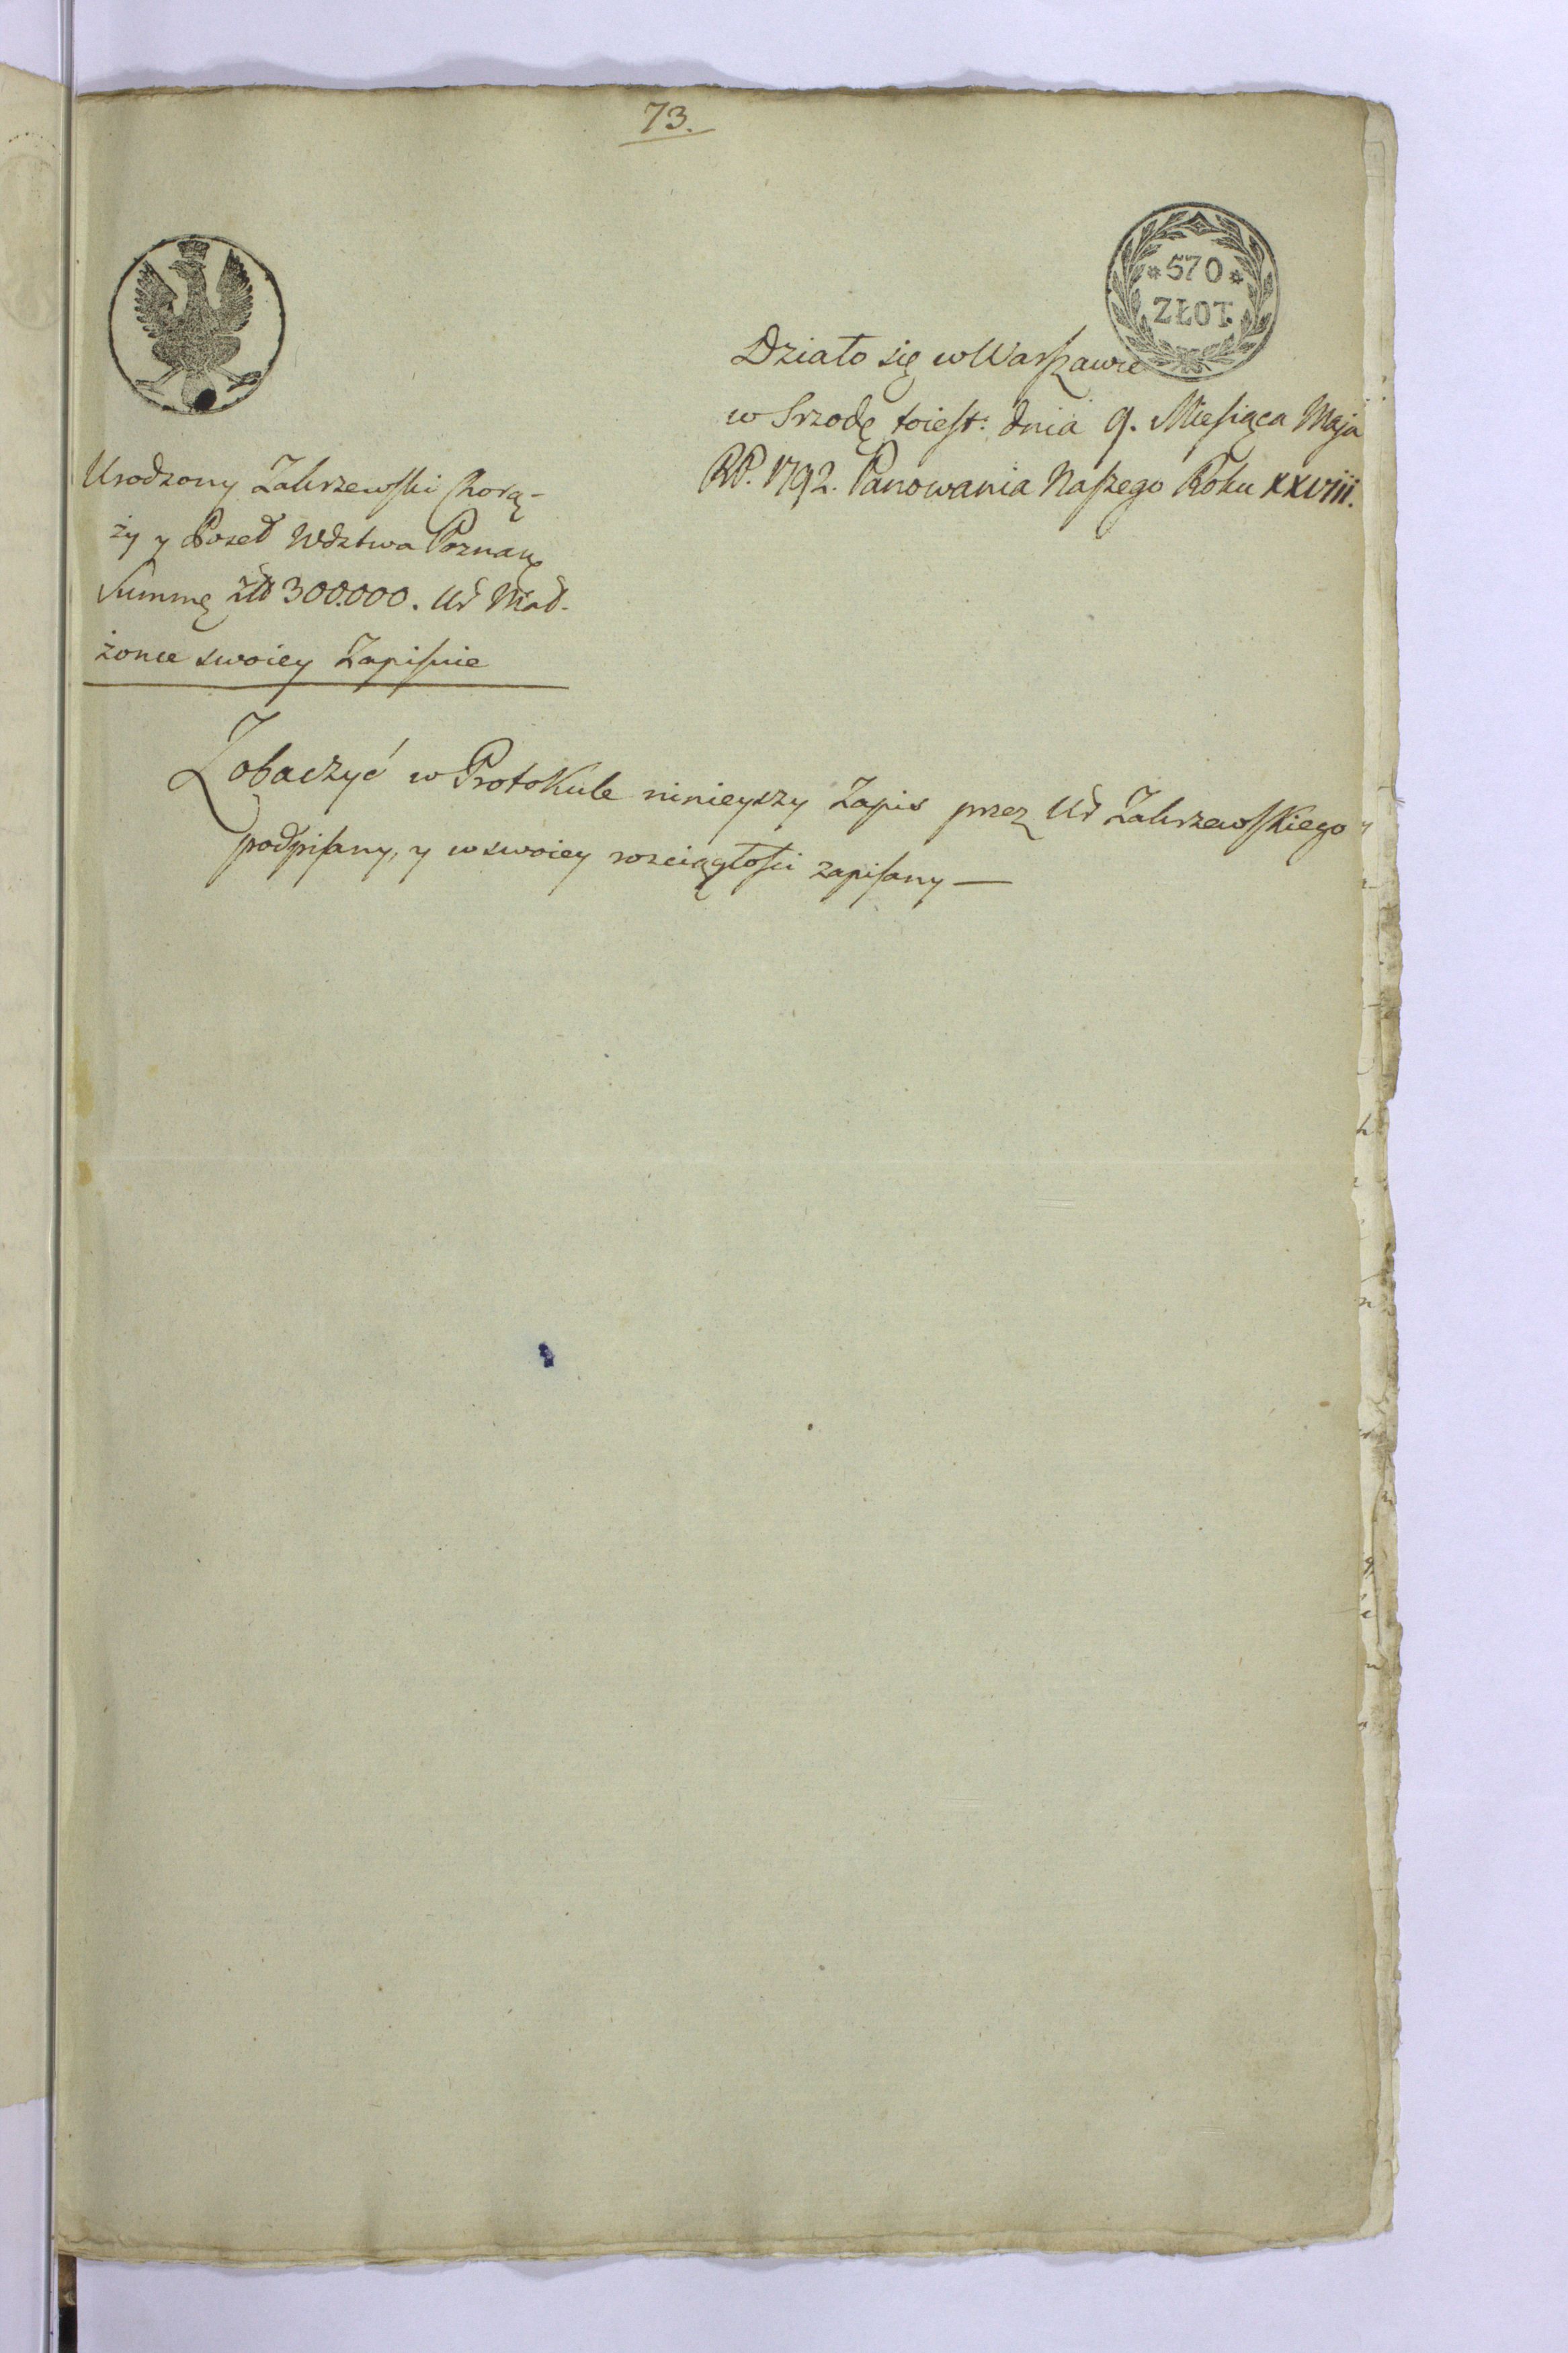 73.
*570*
ZŁOT.
Działo się w Warszawie
w Srzodę toiest: dnia 9. Miesiąca Maja
RP. 1792. Panowania Naszego Roku XXVIII.
Urodzony Zakrzewski Chorą-
ży y Poseł Wdztwa Poznań
Summę Złł 300.000. Ur Mał-
żonce swoiey Zapisuie
Zobaczyć w Protokule ninieyszy Zapis przez Ur Zakrzewskiego
podpisany, y w swoiey rozciągłości zapisany —